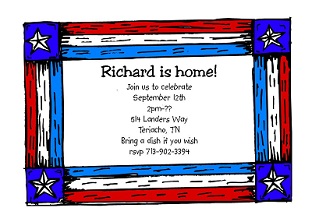 Richard is home!
Join us to celebrate
September 12th
2pm-??
514 Landers Way
Teriocho, TN
Bring a dish if you wish
rsvp 713-902-3394